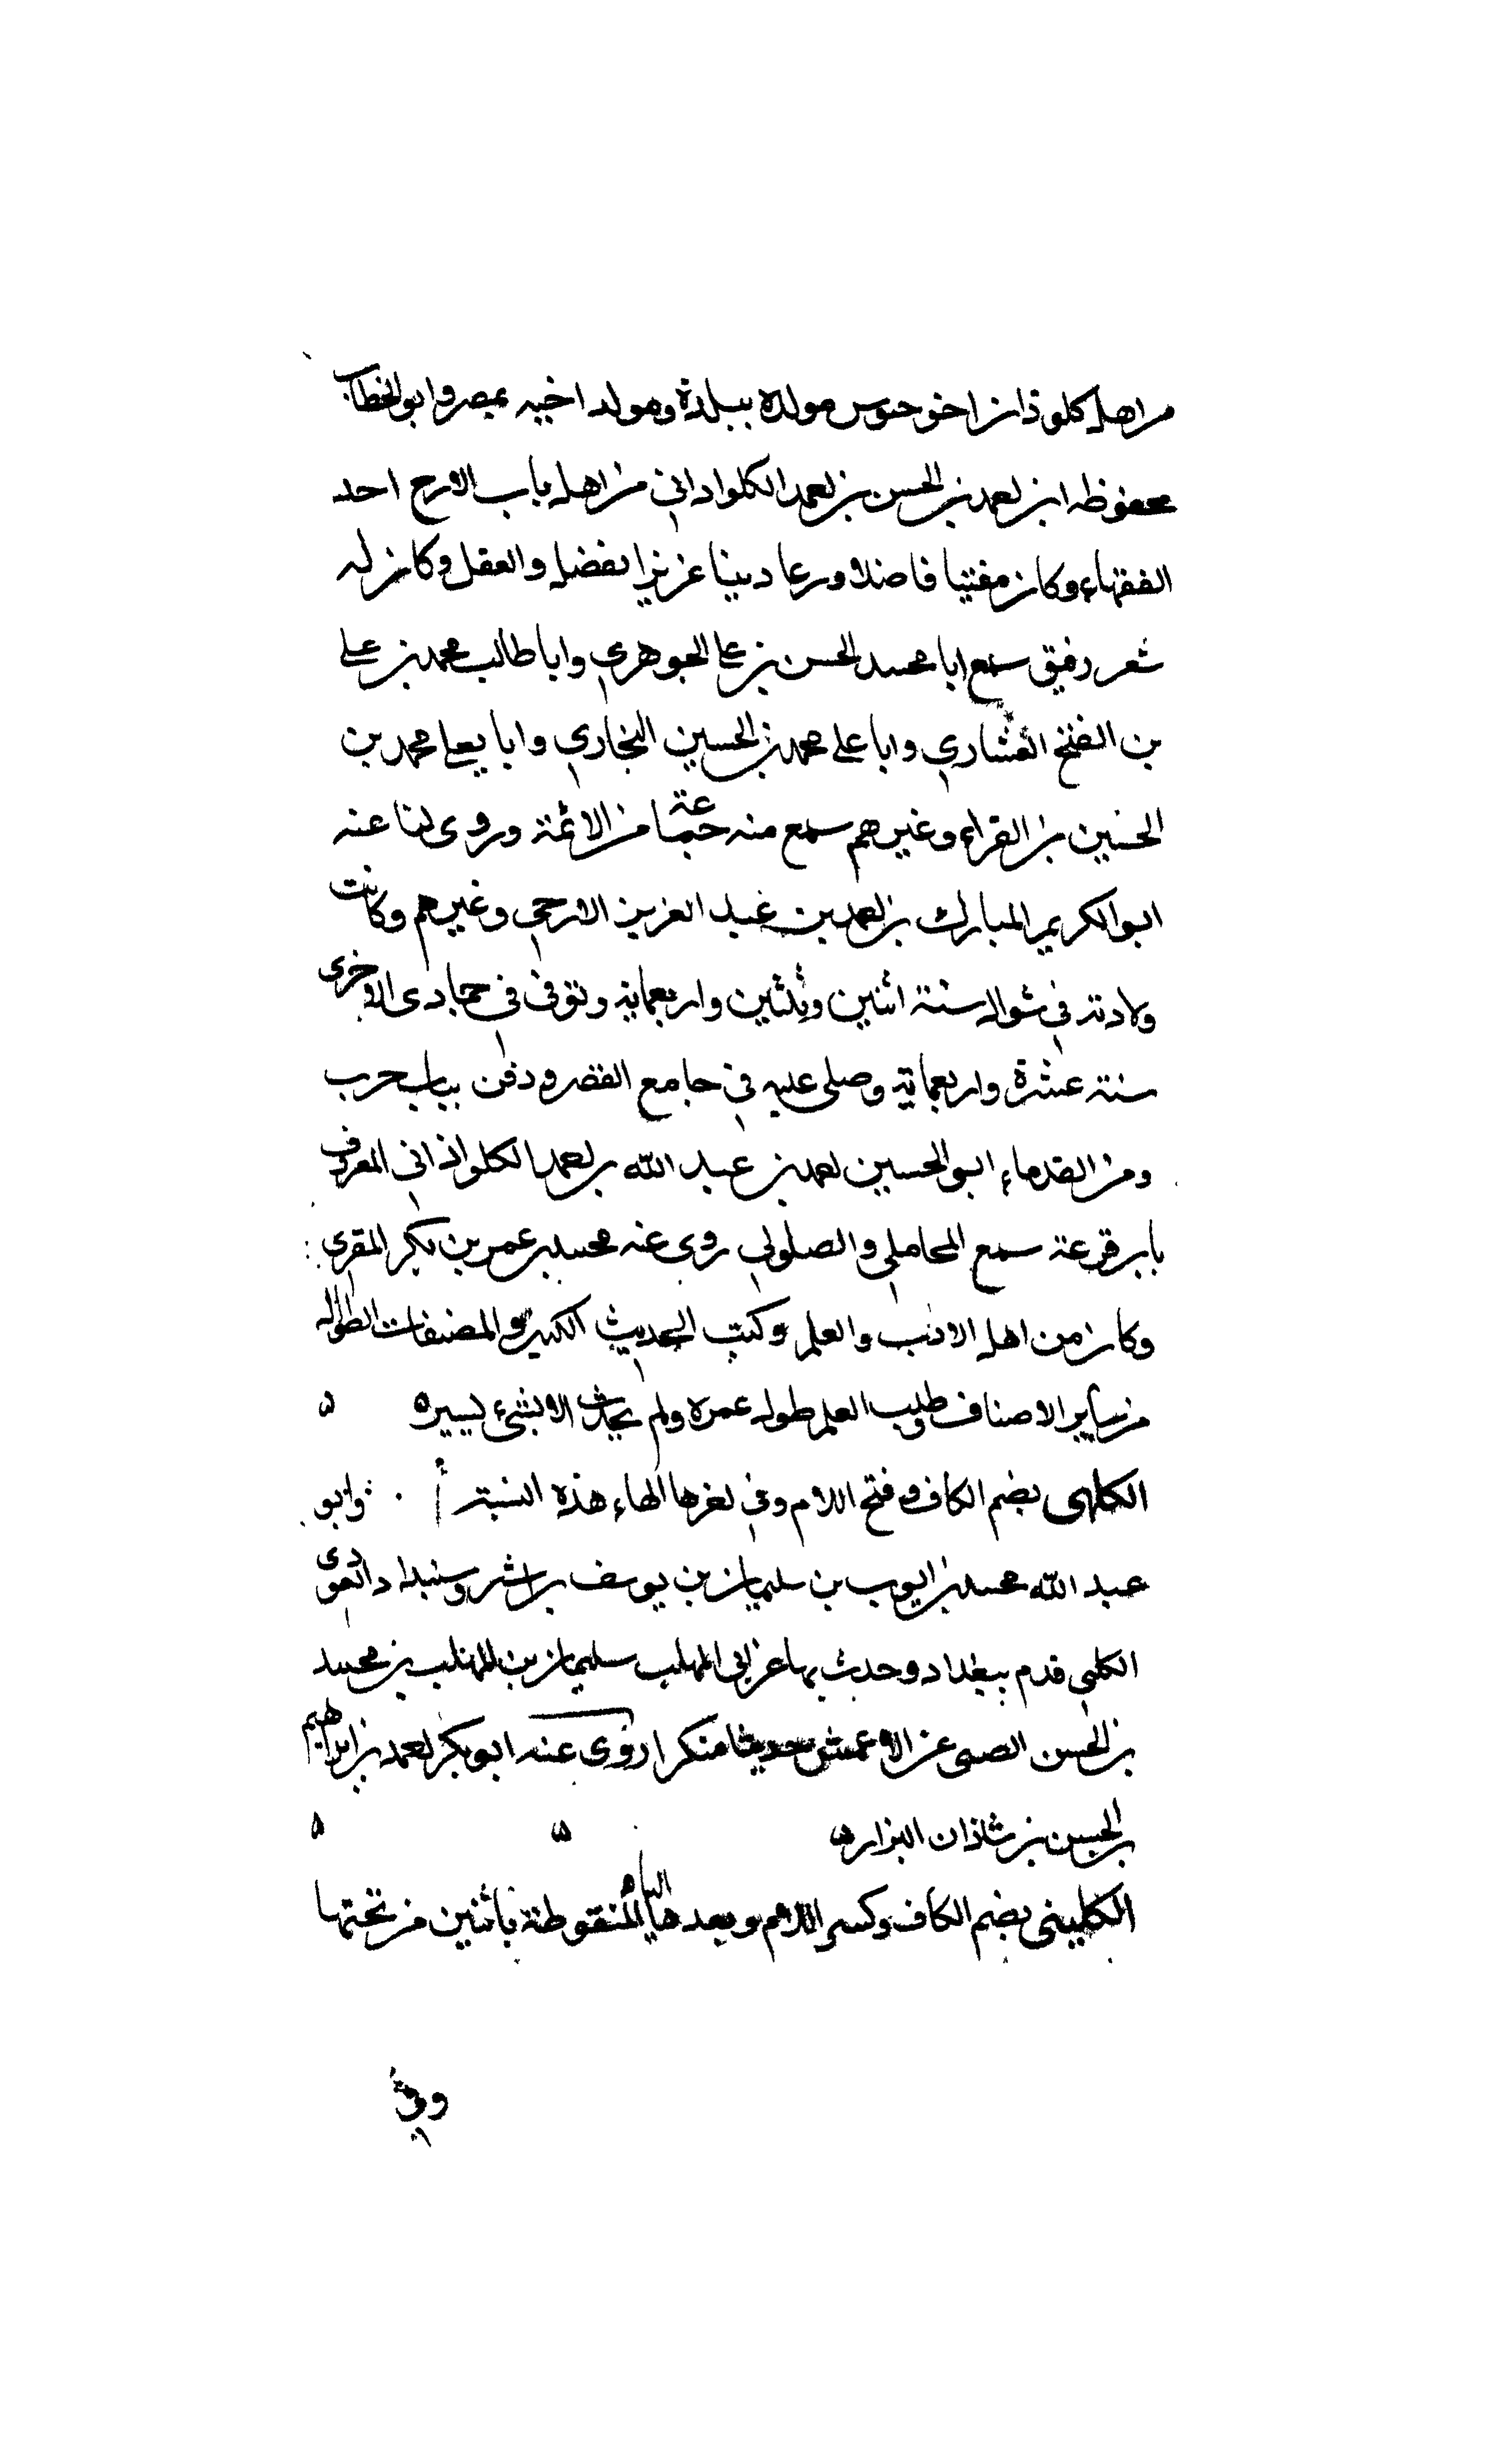 من اهل كلوذان اخو حبوس مولده ببلدة ومولد اخيه بمصر وابو الخطاب
محفوظ ابن احمد بن الحسن بن احمد الكلواداني من اهل باب الازج احد
الفقهاء وكان مفتيا فاضلا ورعا دينا غزير الفضل والعقل وكان له
شعر رقيق سمع ابا محمد الحسن بن علي الجوهري وابا طالب محمد بن علي
بن الفتح العشاري وابا علي محمد بن الحسين الجازري وابا يعلى محمد بن
الحسين بن الفراء وغيرهم سمع منه جماعة من الائمة وروى لنا عنه
ابو الكريم المبارك بن احمد بن عبد العزيز الازجي وغيرهم وكانت
ولادته في شوال سنة اثنين وثلثين واربعماية وتوفى في جمادى الاخرى
سنة عشرة واربعماية وصلى عليه في جامع القصر ودفن بباب حرب
ومن القدماء ابو الحسين احمد بن عبد الله بن احمد الكلواذاني المعروف
بابن قرعة سمع المحاملي والصولي روى عنه محمد بن عمر بن بكر المقري
وكان من اهل الادب والعلم وكتب الحديث الكثير والمصنفات الطوال
من ساير الاصناف وطلب العلم طول عمره ولم يحدث الا بشيء يسير ه
الكلهى بضم الكاف وفتح اللام وفي اخرها الهاء هذه النسبة وابو
عبد الله محمد بن ايوب بن سليمان بن يوسف بن العودي
الكلهي قدم ببغداد وحدث بها عن ابي المهلب سليمان بن المهلب بن محمد
بن الحسن الصبي عن الاعمش حديثا منكرا روى عنه ابو بكر احمد بن ابراهيم
بن الحسن بن شاذان البزار ه ه ه
الكليني بضم الكاف وكسر اللام وبعدها الياء المنقوطة باثنين من تحتها
وفي